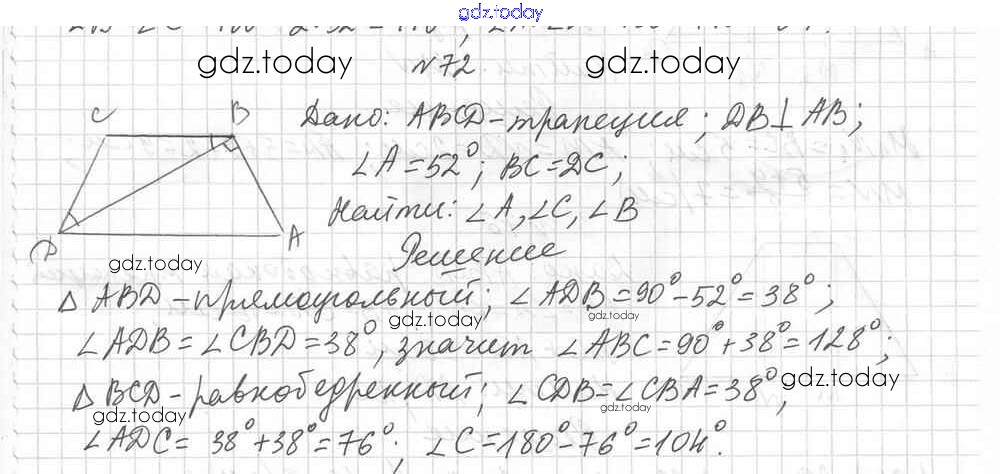 gdz.today
gdz.today №72 gdz.today
C B
D A
Дано: ABCD-трапеция; DB⊥AB;
∠A=52°; BC=DC;
Найти: ∠A, ∠C, ∠B
Решение
gdz.today
△ ABD-прямоугольный; ∠ADB=90°-52°=38°;
gdz.today gdz.today
∠ADB=∠CBD=38°, значит ∠ABC=90°+38°=128°;
△ BCD-равнобедренный; ∠CDB=∠CBA=38°;
gdz.today gdz.today gdz.today
∠ADC= 38°+38°=76°; ∠C=180°-76°=104°.